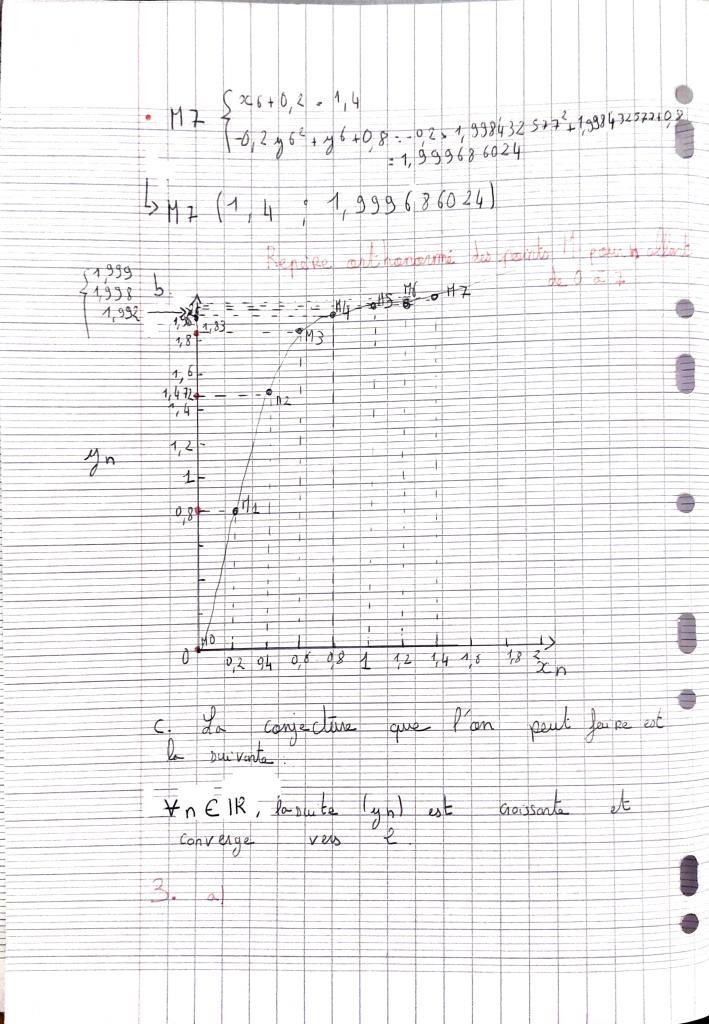 M7 { x6+0,2 = 1,4
-0,2 y6² + y6 + 0,8 = -0,2 × 1,998432577² + 1,998432577+0,8
= 1,999686024
↳ M7 (1,4 ; 1,999686024)
Repère orthonormé des points M pour n allant
de 0 à 7
1,999
1,998
1,992
b.
1,96
1,83
1,8
1,6
1,472
1,4
1,2
1
0,8
yn
M0
M1
M2
M3
M4
M5
M6
M7
0 0,2 0,4 0,6 0,8 1 1,2 1,4 1,6 1,8 2
xn
c. La conjecture que l'on peut faire est
la suivante :
∀n ∈ IR, la suite (yn) est croissante et
converge vers 2.
3. a)